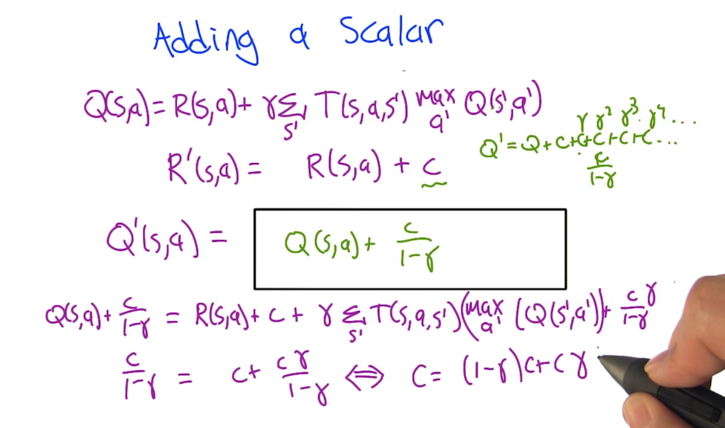 Adding a Scalar
Q(s,a) = R(s,a) + γ Σ_s' T(s,a,s') max_a' Q(s',a')
γ γ² γ³ γ⁴ ...
Q' = Q + c + c + c + c + c ...
c/(1-γ)
R'(s,a) = R(s,a) + c
Q'(s,a) = Q(s,a) + c/(1-γ)
Q(s,a) + c/(1-γ) = R(s,a) + c + γ Σ_s' T(s,a,s') (max_a' (Q(s',a')) + cγ/(1-γ)
c/(1-γ) = c + cγ/(1-γ) ⇔ c = (1-γ)c + cγ